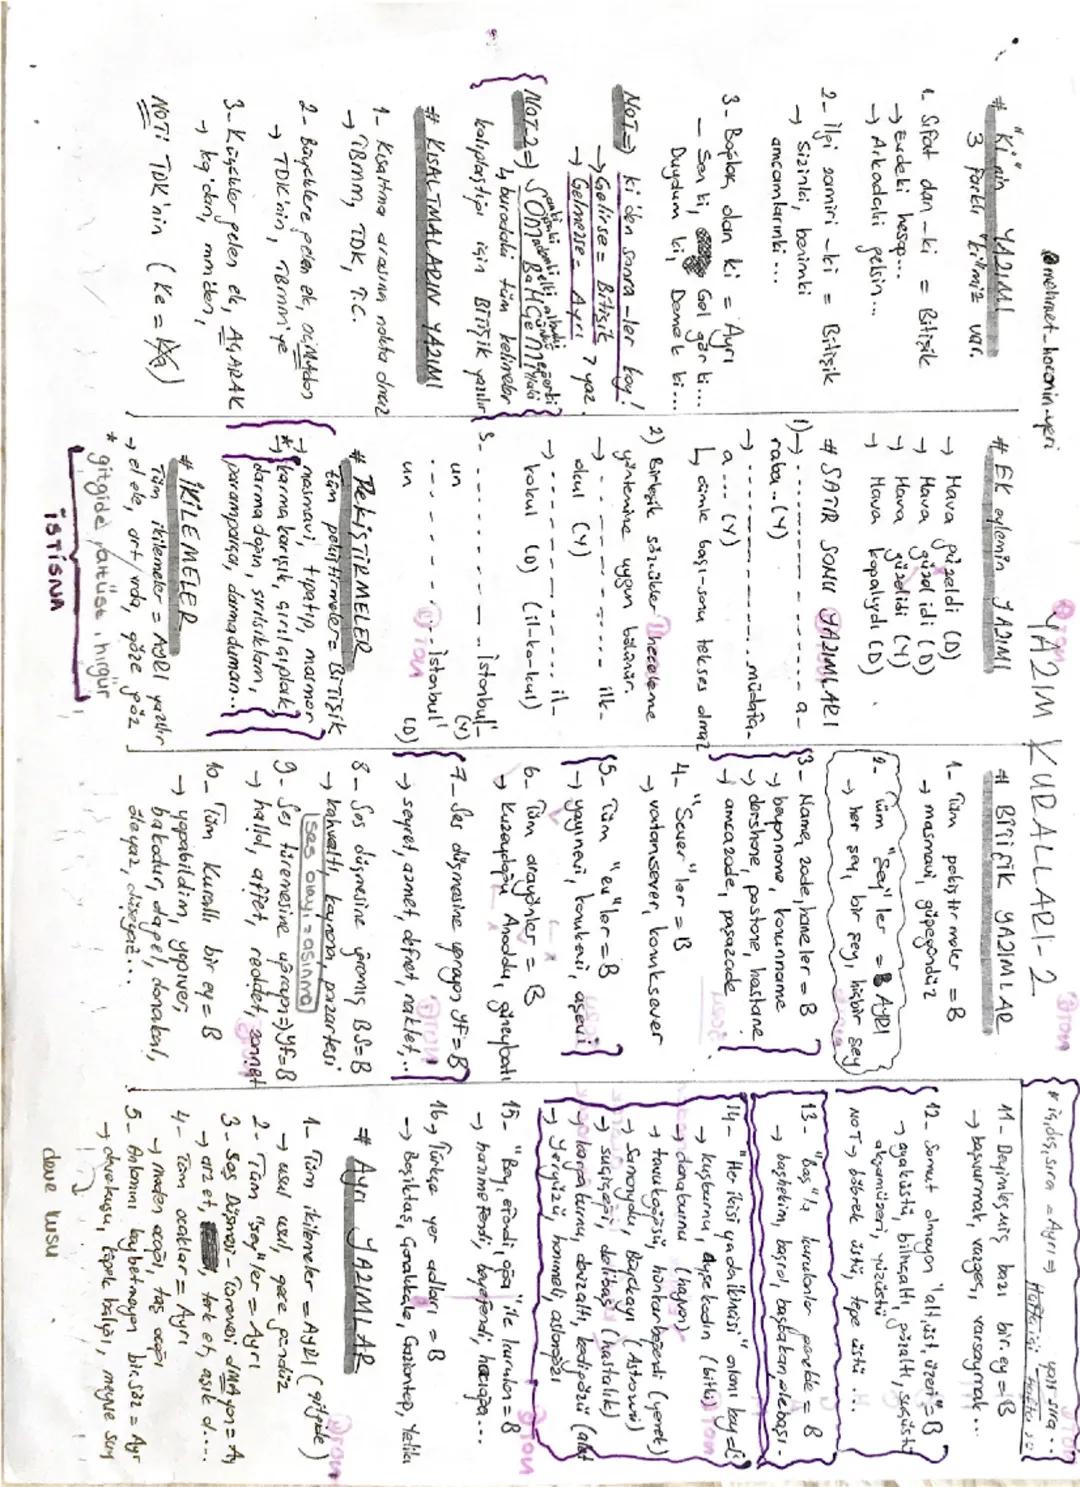 @mehmet_hocanin_yeri
YAZIM KURALLARI-2
# "Ki"nin YAZIMI
3 farklı "ki"miz var.
1- Sıfat dan -ki = Bitişik
→ Evdeki hesap...
→ Arkadaki gelsin...
2- İlgi zamiri -ki = Bitişik
→ Sizinki, benimki
amcamlarınki ...
3- Bağlaç olan ki = Ayrı
- Sen ki, Gel gör ki...
Duydum ki, Demek ki...
NOT=) ki'den sonra -ler koy!
→ Gelirse = Bitişik
→ Gelmezse = Ayrı yaz.
NOT 2=) SOMBaHÇeM
↳ buradaki tüm kelimeler
kalıplaştığı için BİTİŞİK yazılır
# KISALTMALARIN YAZIMI
1- Kısaltma arasına nokta olmaz
→ TBMM, TDK, T.C.
2- Büyüklere gelen ek, OKUMAdan
→ TDK'nin, TBMM'ye
3- Küçükler gelen ek, AÇARAK
→ kg'dan, mm'den,
NOT: TDK'nin (Ke = Ka)
# EK eylemin YAZIMI
→ Hava güzeldi (D)
→ Hava güzel idi (D)
→ Hava güzelidi (Y)
→ Hava kapalıydı (D)
# SATIR SONU YAZIMLARI
1) → ............ a-
raba.. (Y)
→ ............ müdafa-
a ... (Y)
↳ cümle başı-sonu tekses olmaz
2) Birleşik sözcükler heceleme
yöntemine uygun bölünür.
→ ............ ilk-
okul (Y)
→ ............ il-
kokul (D) (il-ko-kul)
3- ............ İstanbul'-
un (Y)
............ İstanbul'
un (D)
# PEKİŞTİRMELER
Tüm pekiştirmeler = BİTİŞİK
→ masmavi, tıpatıp, mosmor
* → karmakarışık, çırılçıplak
darmadağın, sırılsıklam,
paramparça, darmaduman...
# İKİLEMELER
Tüm ikilemeler = AYRI yazılır
→ el ele, ard arda, göze göz
* gitgide, altüst, hırgür
İSTİSNA
# BİTİŞİK YAZIMLAR
1- Tüm pekiştirmeler = B
→ masmavi, güpegündüz
2- Tüm "Şey"ler = AYRI
→ her şey, bir şey, hiçbir şey
3- Name, zade, haneler = B
→ beyanname, kanunname
→ dershane, postane, hastane
→ amcazade, paşazade
4- "Sever"ler = B
→ vatansever, konuksever
5- Tüm "ev"ler = B
→ yayınevi, konukevi, aşevi
6- Tüm arayönler = B
→ Kuzeydoğu Anadolu, güneybatı
7- Ses düşmesine uğrayan YF = B
→ seyret, azmet, defnet, naklet,..
8- Ses düşmesine uğramış BS=B
→ kahvaltı, kaynana, pazartesi
ses olayı = aşınma
9- Ses türemesine uğrayan=) YF=B
→ hallol, affet, reddet, zannet
10- Tüm Kurallı bir. ey = B
→ yapabildim, yapıver,
bakadur, çıkagel, donakal,
öleyaz, düşeyaz...
* iç, dış, sıra = Ayrı =) yanı sıra..
Hafta içi
11- Deyimleşmiş bazı bir.ey = B
→ başvurmak, vazgeç, varsaymak...
12- Somut olmayan "alt, üst, üzeri" = B
→ ayaküstü, bilinçaltı, gözaltı, suçüstü
akşamüzeri, yüzüstü
NOT → böbrek üstü, tepe üstü ...
13- "baş"la kurulanlar genelde = B
→ başhekim, başrol, başbakan, elebaşı -
14- "Her ikisi ya da ikincisi" anlamı kay-
→ kuşburnu, Ayşekadın (bitki)
→ danaburnu (hayvan)
→ tavukgöğsü, hünkarbeğendi (yemek)
→ Samanyolu, Büyükayı (Astronomi)
→ suçiçeği, delibaş (hastalık)
→ kargaburnu, denizaltı, kedigözü (alet
→ Yeryüzü, hanımeli, aslanağzı
15- "Bey, efendi, ağa" ile kurulan = B
→ hanımefendi, beyefendi, hacıağa...
16, Türkçe yer adları = B
→ Beşiktaş, Çanakkale, Gaziantep,
# AYRI YAZIMLAR
1- Tüm ikilemeler = AYRI (gitgide)
→ usul usul, gece gündüz
2- Tüm "şey"ler = Ayrı
3- Ses Düşmesi - Türemesi olMAyan = Ay
→ arz et, terk et, aşık ol...
4- Tüm ocaklar = Ayrı
→ maden ocağı, taş ocağı
5- Anlamını kaybetmeyen bir.söz = Ayr
→ devekuşu, köpek balığı, meyve suy
deve kuşu